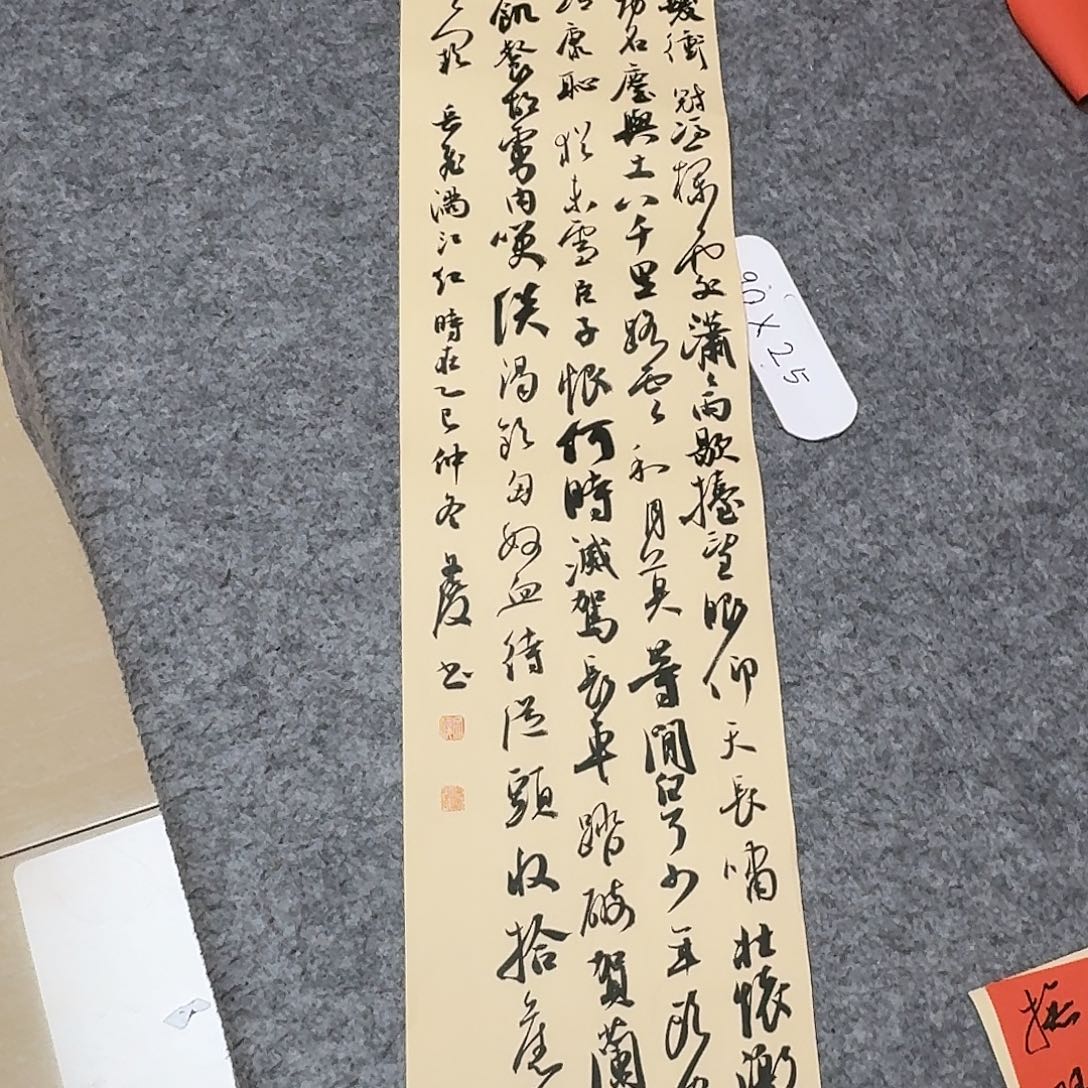 髮衝冠憑欄處瀟〻雨歇擡望眼仰天長嘯壯懷激
功名塵與土八千里路雲和月莫等閒白了少年頭空
靖康恥猶未雪臣子恨何時滅駕長車踏破賀蘭
飢餐胡虜肉笑談渴飲匈奴血待從頭收拾舊
天闕 岳飛滿江紅時在乙巳仲冬 慶书
90×25